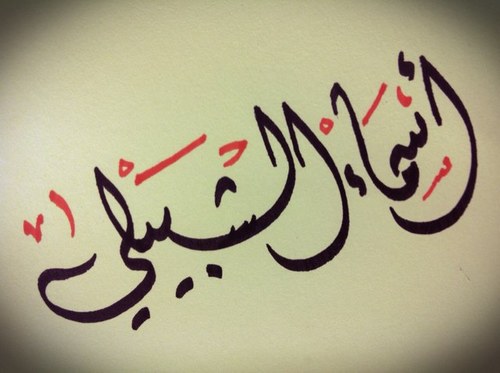 أسماء الشبيلي